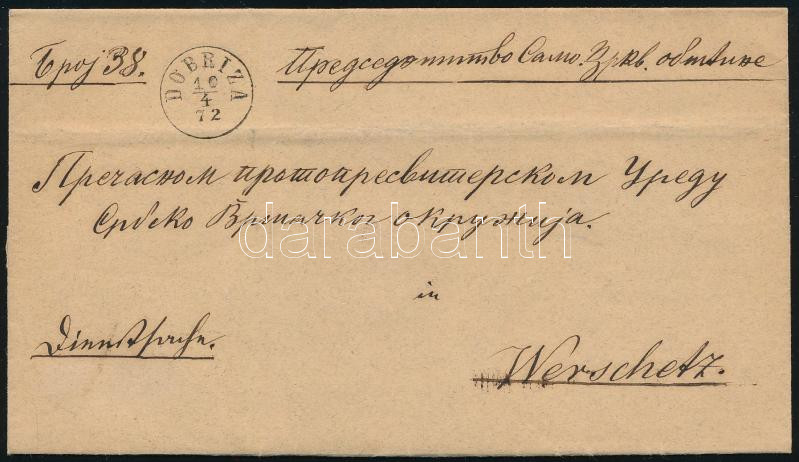 Број 38.
DOBRIZA
10
4
72
Председателтво Само. Зркв. обштине
Пречасном протопресвитерском Уреду
Србско Вршачког окружија.
darabanth
in
Dienstsache.
Werschetz.